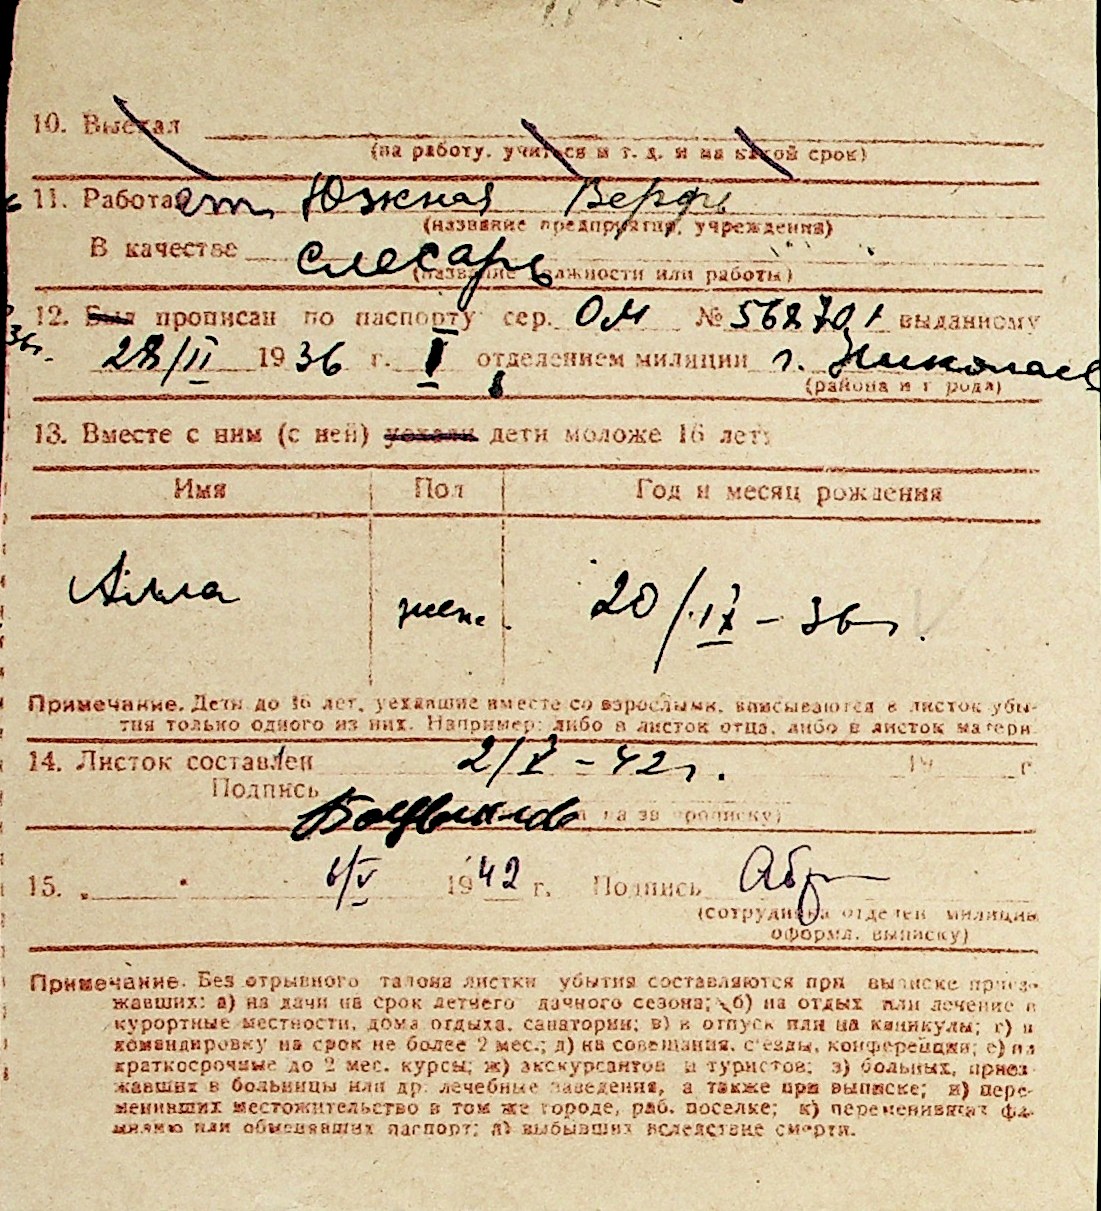 10. Выехал
(на работу, учиться и т. д. и на какой срок)
11. Работает Южная Верфь
(название предприятия, учреждения)
В качестве слесарь
(название должности или работы)
12. Был прописан по паспорту сер. ОМ № 568701 выданному
36г. 28/II 1936 г. I отделением милиции г. Николаев
(района и города)
13. Вместе с ним (с ней) уехали дети моложе 16 лет:
Имя Пол Год и месяц рождения
Алла жен. 20/IX – 36г.
Примечание. Дети до 16 лет, уехавшие вместе со взрослыми, вписываются в листок убы-
тия только одного из них. Например: либо в листок отца, либо в листок матери.
14. Листок составлен 2/V – 42г. 19 г.
Подпись
на за прописку)
15. 6/V 1942 г. Подпись
(сотрудника отделен. милиции
оформл. выписку)
Примечание. Без отрывного талона листки убытия составляются при выписке приез-
жавших: а) на дачи на срок летнего дачного сезона; б) на отдых или лечение в
курортные местности, дома отдыха, санатории; в) в отпуск или на каникулы; г) в
командировку на срок не более 2 мес.; д) на совещания, с'езды, конференции; е) на
краткосрочные до 2 мес. курсы; ж) экскурсантов и туристов; з) больных, приез-
жавших в больницы или др. лечебные заведения, а также при выписке; и) пере-
менивших местожительство в том же городе, раб. поселке; к) переменивших фа-
милию или обменявших паспорт; л) выбывших вследствие смерти.